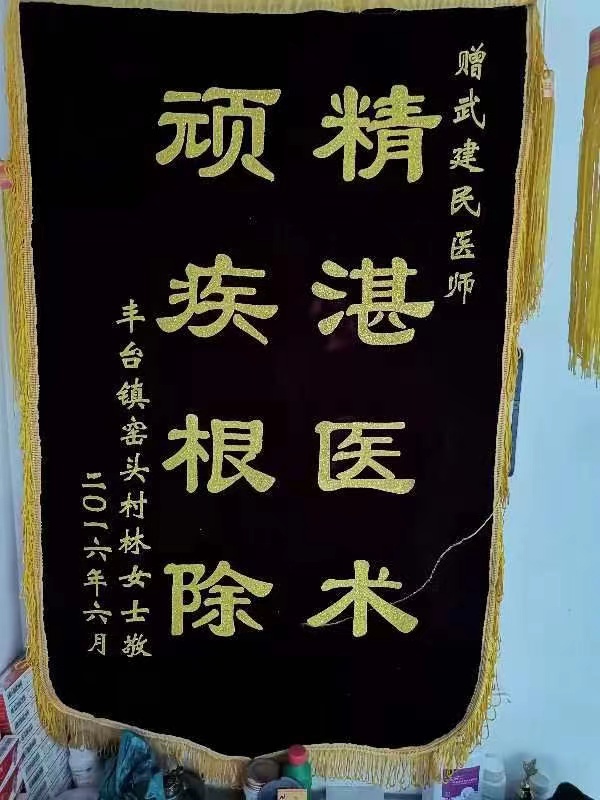 赠武建民医师
精湛医术
顽疾根除
丰台镇窑头村林女士敬
二〇一六年六月